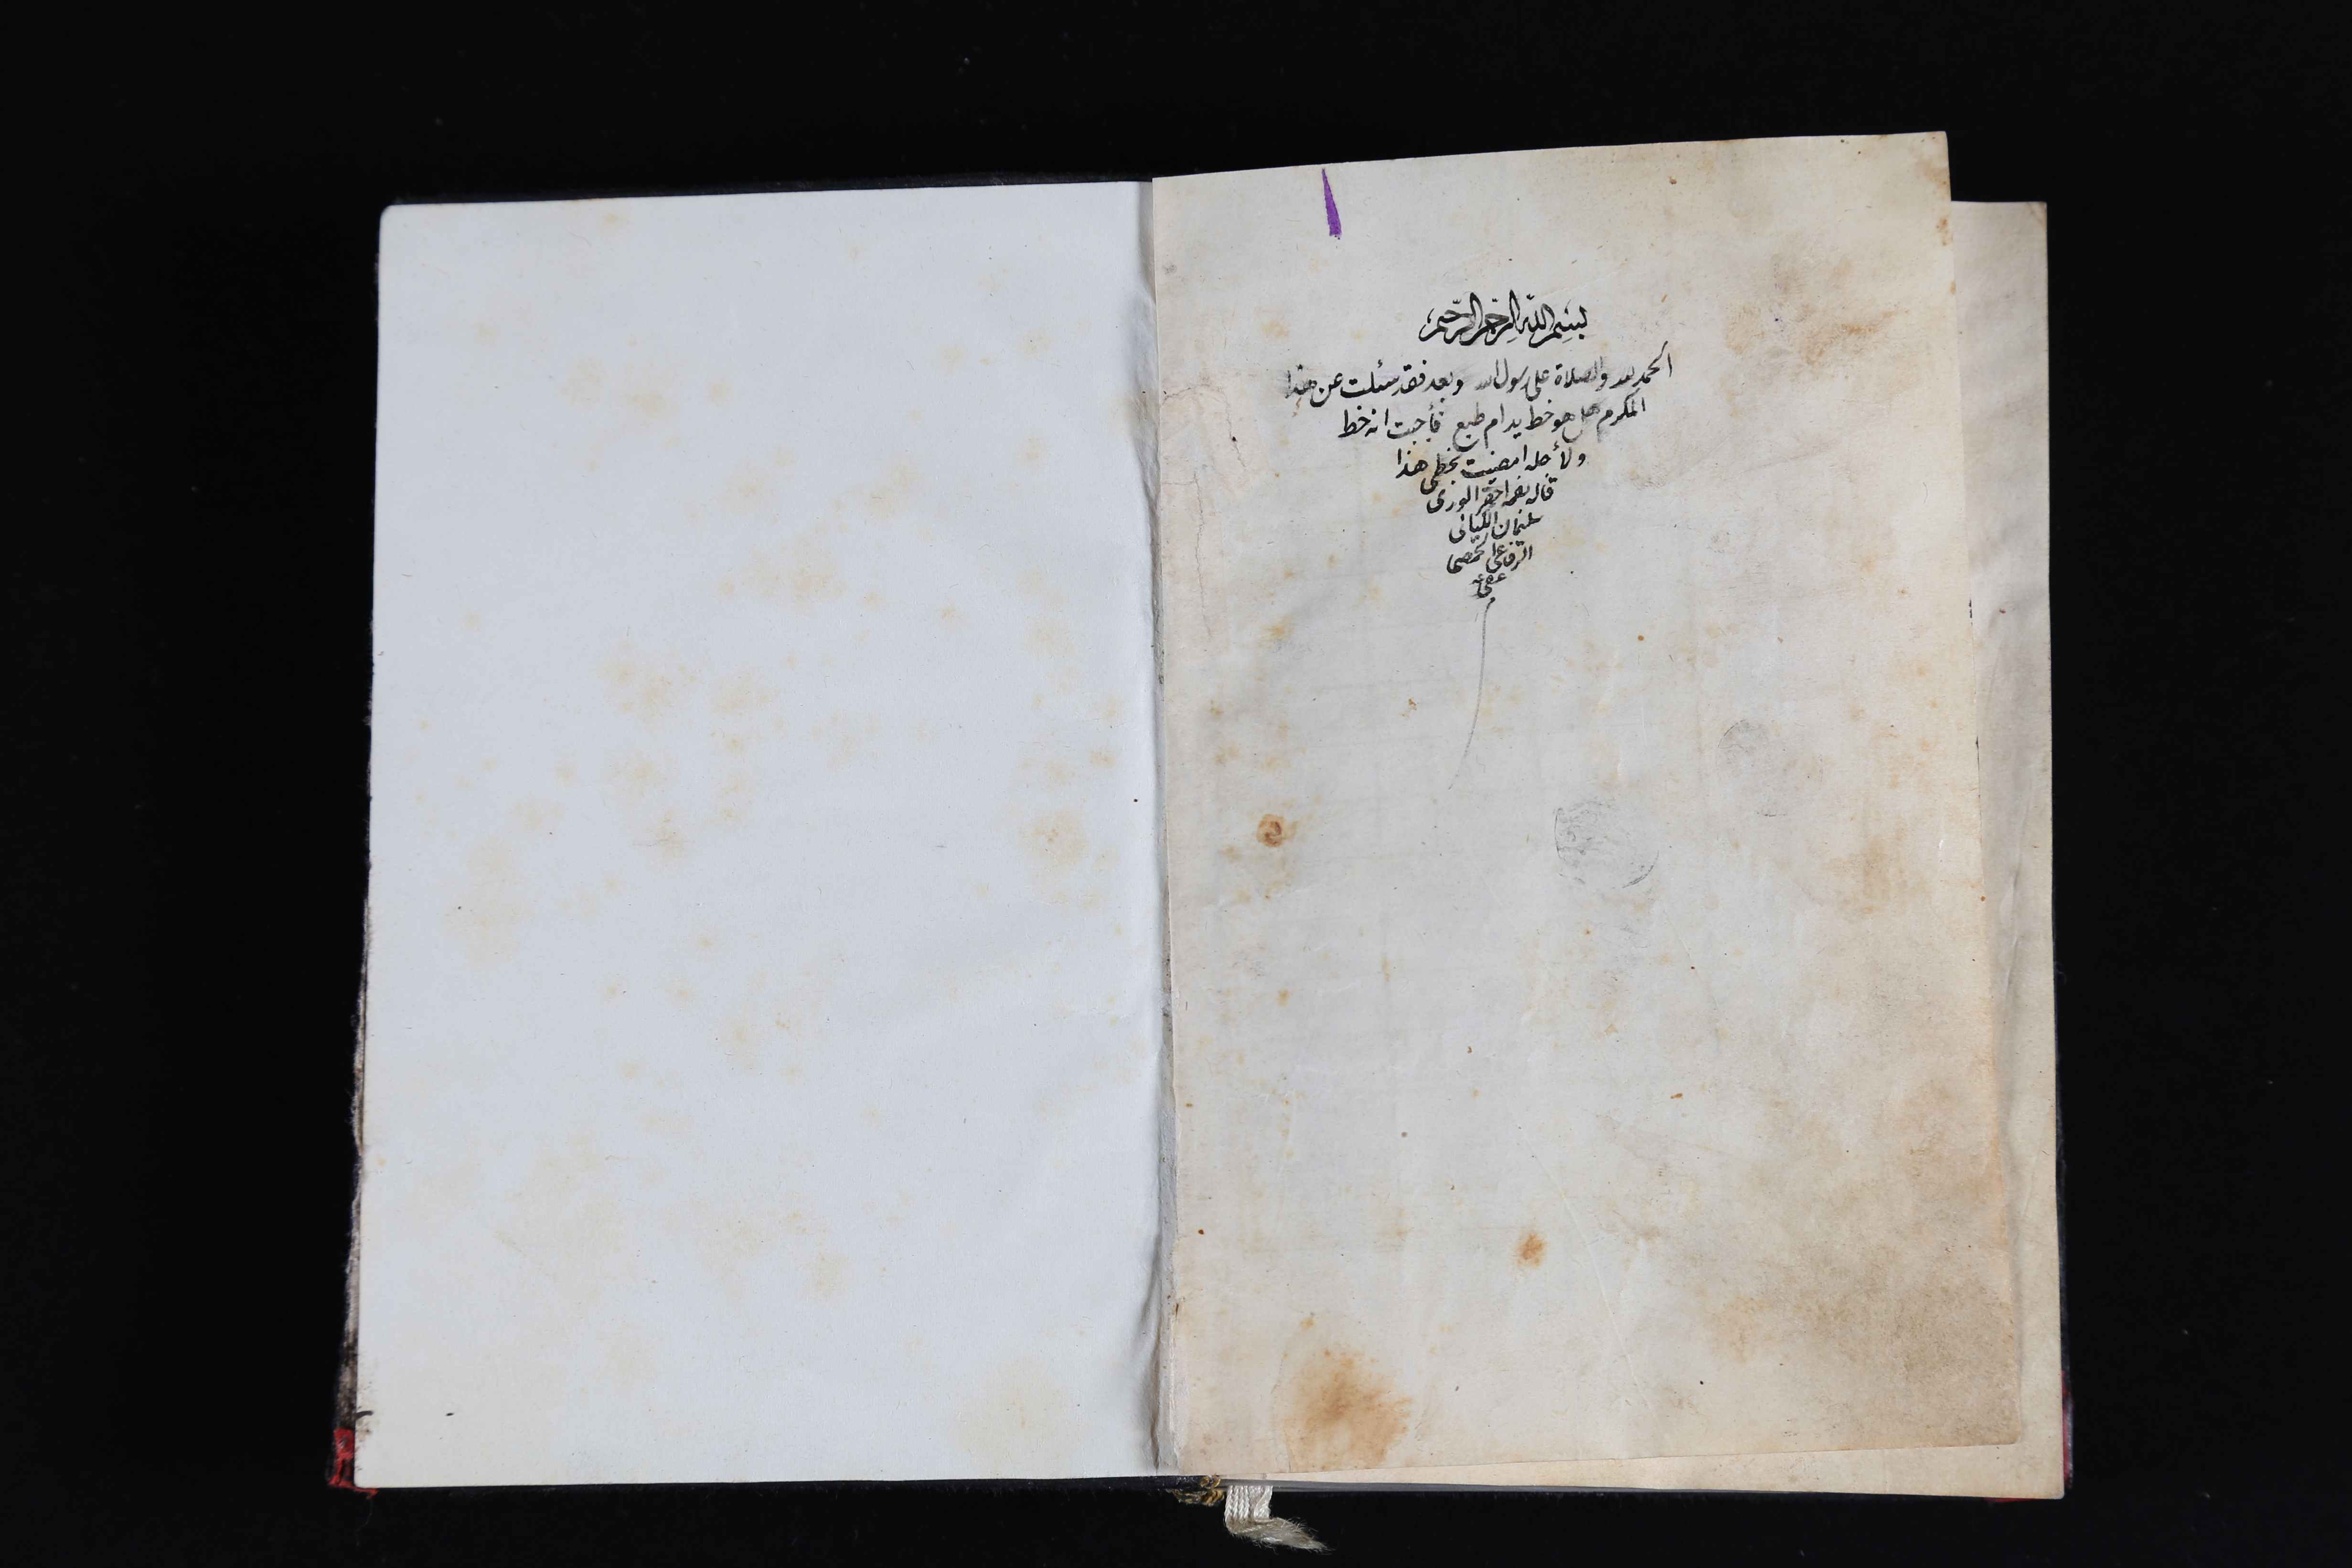 بسم الله الرحمن الرحيم
الحمد لله والصلاة على رسول الله وبعد فقد سئلت عن هذا
المكرم هل هو خط يد ام طبع فأجبت انه خط
ولأجله امضيت بخطي هذا
قاله بفمه احقر الورى
سليمان الكيالى
الرفاعى الحمصى
عفي عنه